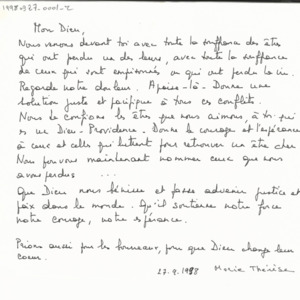 1998.927.0001-2
Mon Dieu,
Nous venons devant toi avec toute la souffrance des êtres
qui ont perdu un des leurs, avec toute la souffrance
de ceux qui sont emprisonnés ou qui ont perdu la vie.
Regarde notre douleur. Apaise-là. Donne une
solution juste et pacifique à tous ces conflits.
Nous te confions les êtres que nous aimons, à toi qui
es un Dieu-Providence. Donne le courage et l'espérance
à ceux et celles qui luttent pour retrouver un être cher
Nous pouvons maintenant nommer ceux que nous
avons perdus ...
Que Dieu nous bénisse et fasse advenir justice et
paix dans le monde. Qu'il soutienne notre force
notre courage, notre espérance.
Prions aussi pour les bourreaux, pour que Dieu change leur
coeur.
27.9.1998 Marie Thérèse